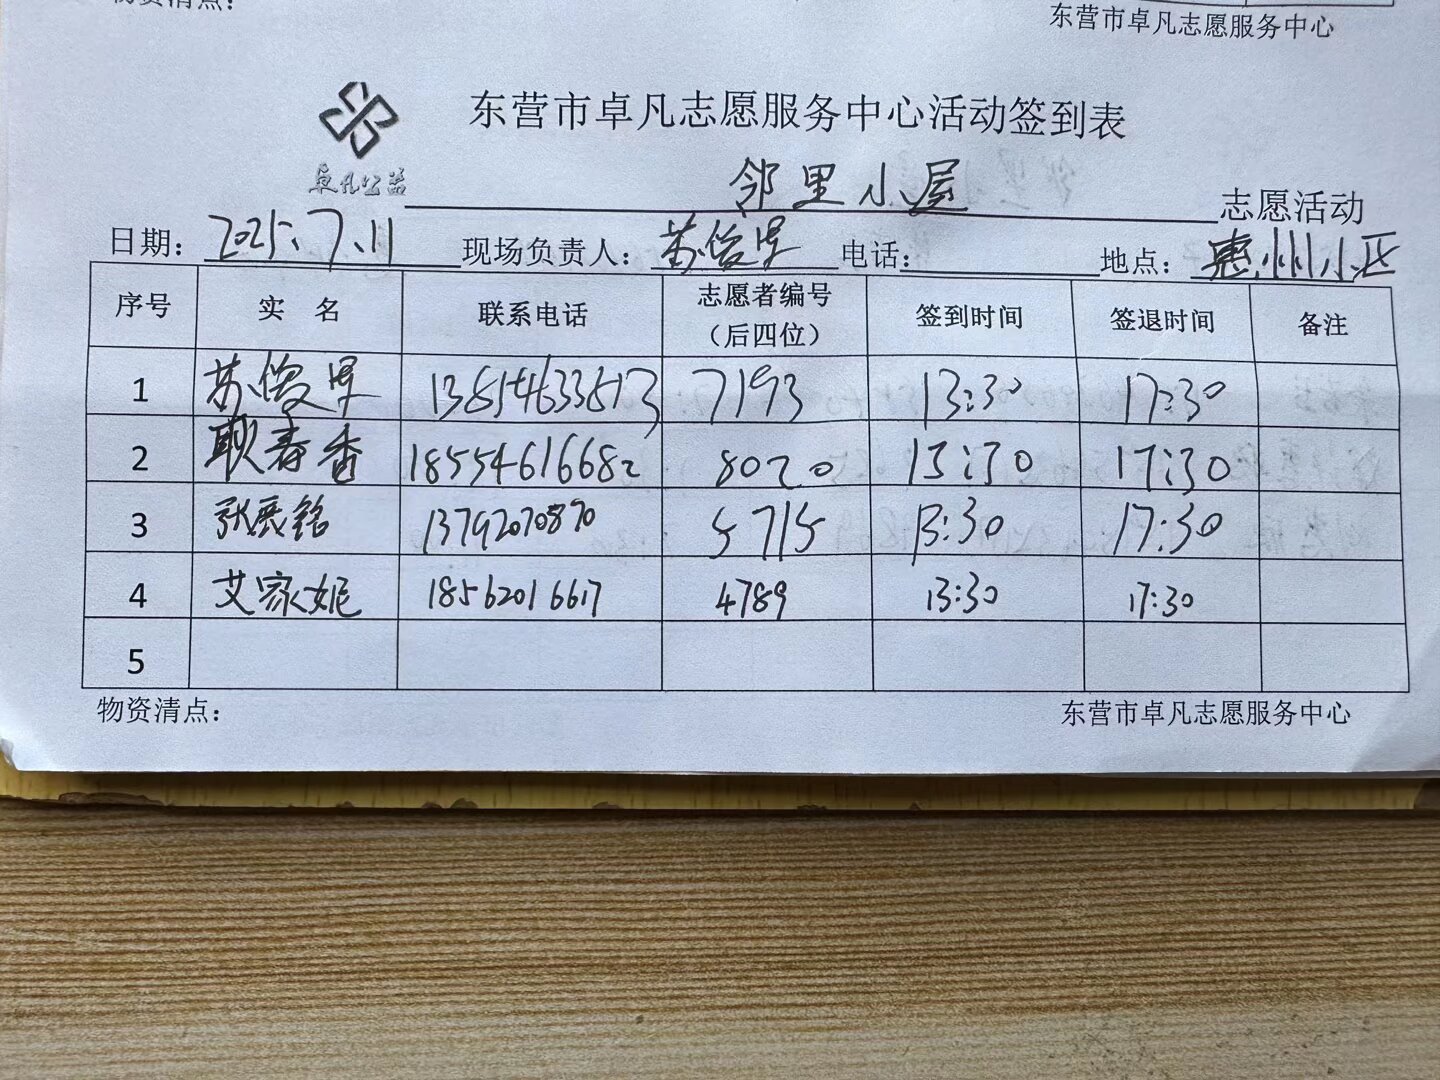 物资清点：
东营市卓凡志愿服务中心
东营市卓凡志愿服务中心活动签到表
卓凡公益
邻里小屋 志愿活动
日期：2025.7.11 现场负责人：苏俊 电话： 地点：惠州小区
序号 实 名 联系电话 志愿者编号（后四位） 签到时间 签退时间 备注
1 苏俊 7193 13:30 17:30
2 耿春香 18554616682 8020 13:30 17:30
3 张展铭 13792070870 5715 13:30 17:30
4 艾家妮 18562016617 4789 13:30 17:30
5
物资清点：
东营市卓凡志愿服务中心